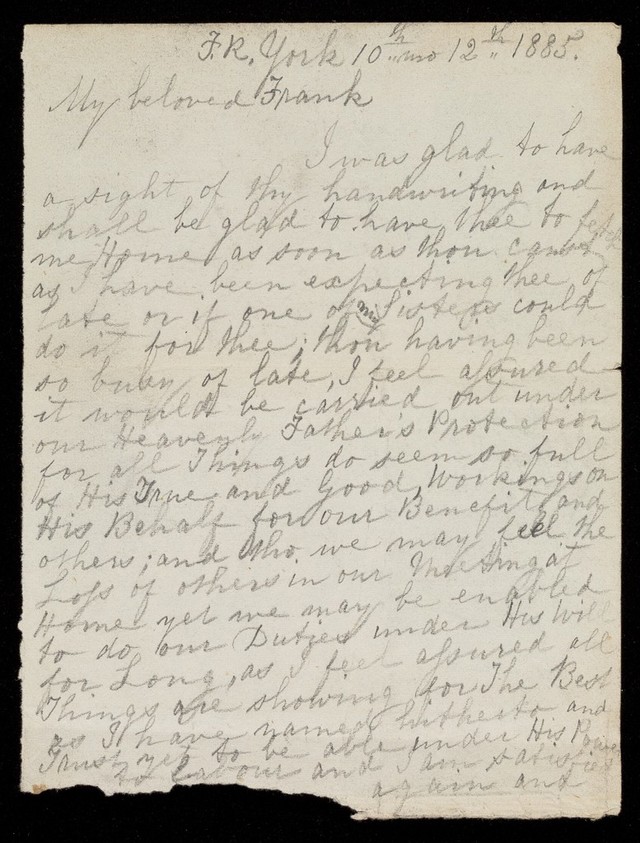 F.R. York 10th mo 12th 1885.
My beloved Frank
I was glad to have
a sight of thy handwriting and
shall be glad to have thee to fetch
me Home as soon as thou canst
as I have been expecting thee of
late or if one of my Sisters could
do it for thee; thou having been
so busy of late, I feel assured
it would be carried out under
our Heavenly Father's Protection
for all Things do seem so full
of His True and Good Workings on
His Behalf for our Benefit and
others; and tho we may feel the
Loss of others in our Meeting at
Home yet we may be enabled
to do our Duties under His Will
for Long, as I feel assured all
Things are showing for The Best
as I have named hitherto and
Trust yet to be able under His Power
to Labour and I am satisfied
again and